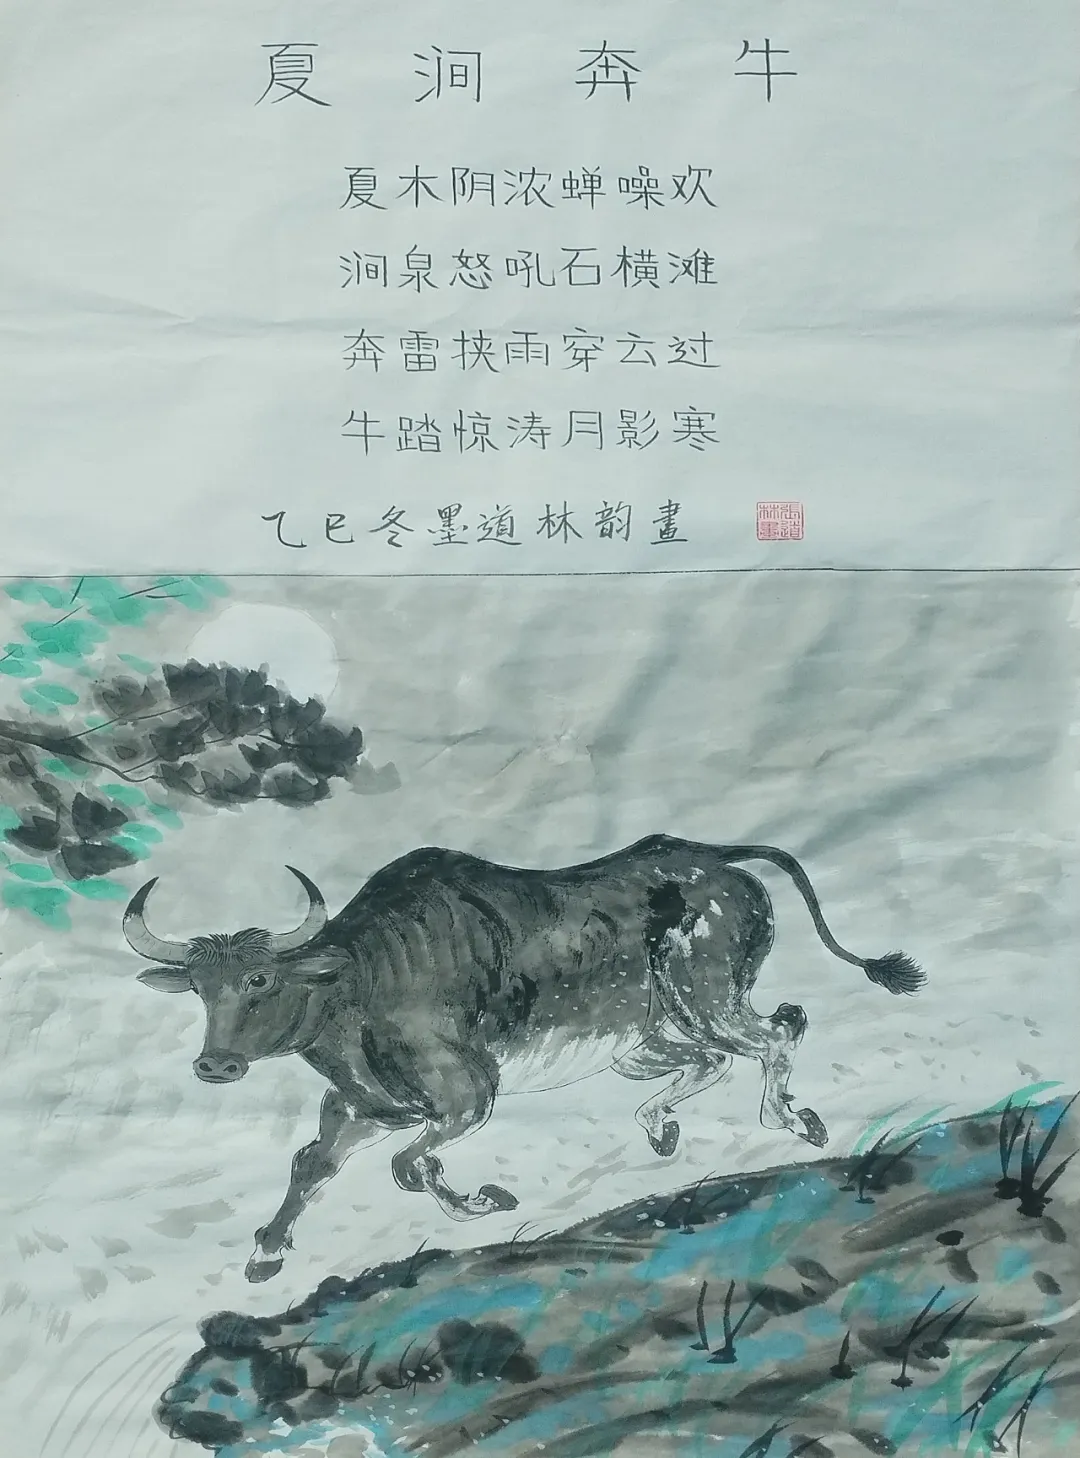 夏涧奔牛
夏木阴浓蝉噪欢
涧泉怒吼石横滩
奔雷挟雨穿云过
牛踏惊涛月影寒
乙巳冬墨道林韵畫
張道林畫